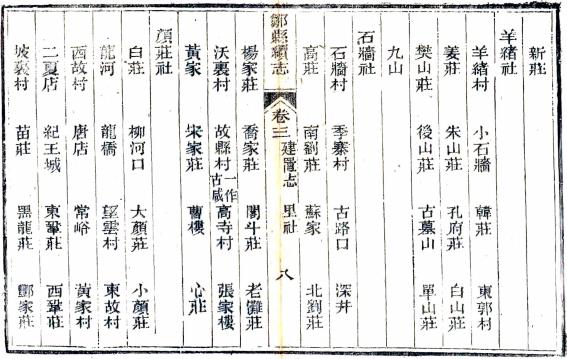 新莊
羊緒社
羊緒村 小石牆 韓莊 東郭村
姜莊 朱山莊 孔府莊 白山莊
樊山莊 後山莊 古墓山 單山莊
九山
石牆社
石牆村 季寨村 古路口 深井
高莊 南劉莊 蘇家 北劉莊
鄒縣續志 卷三 建置志 里社 八
楊家莊 喬家莊 閣斗莊 老灘莊
沃裏村 故縣村一作古咸 高寺村 張家樓
黃家 宋家莊 曹樓 心莊
顏莊社
白莊 柳河口 大顏莊 小顏莊
龍河 龍橋 望雲村 東故村
西故村 唐店 常峪 黃家村
二夏店 紀王城 東鞏莊 西鞏莊
坡裏村 苗莊 黑龍莊 鄭家莊